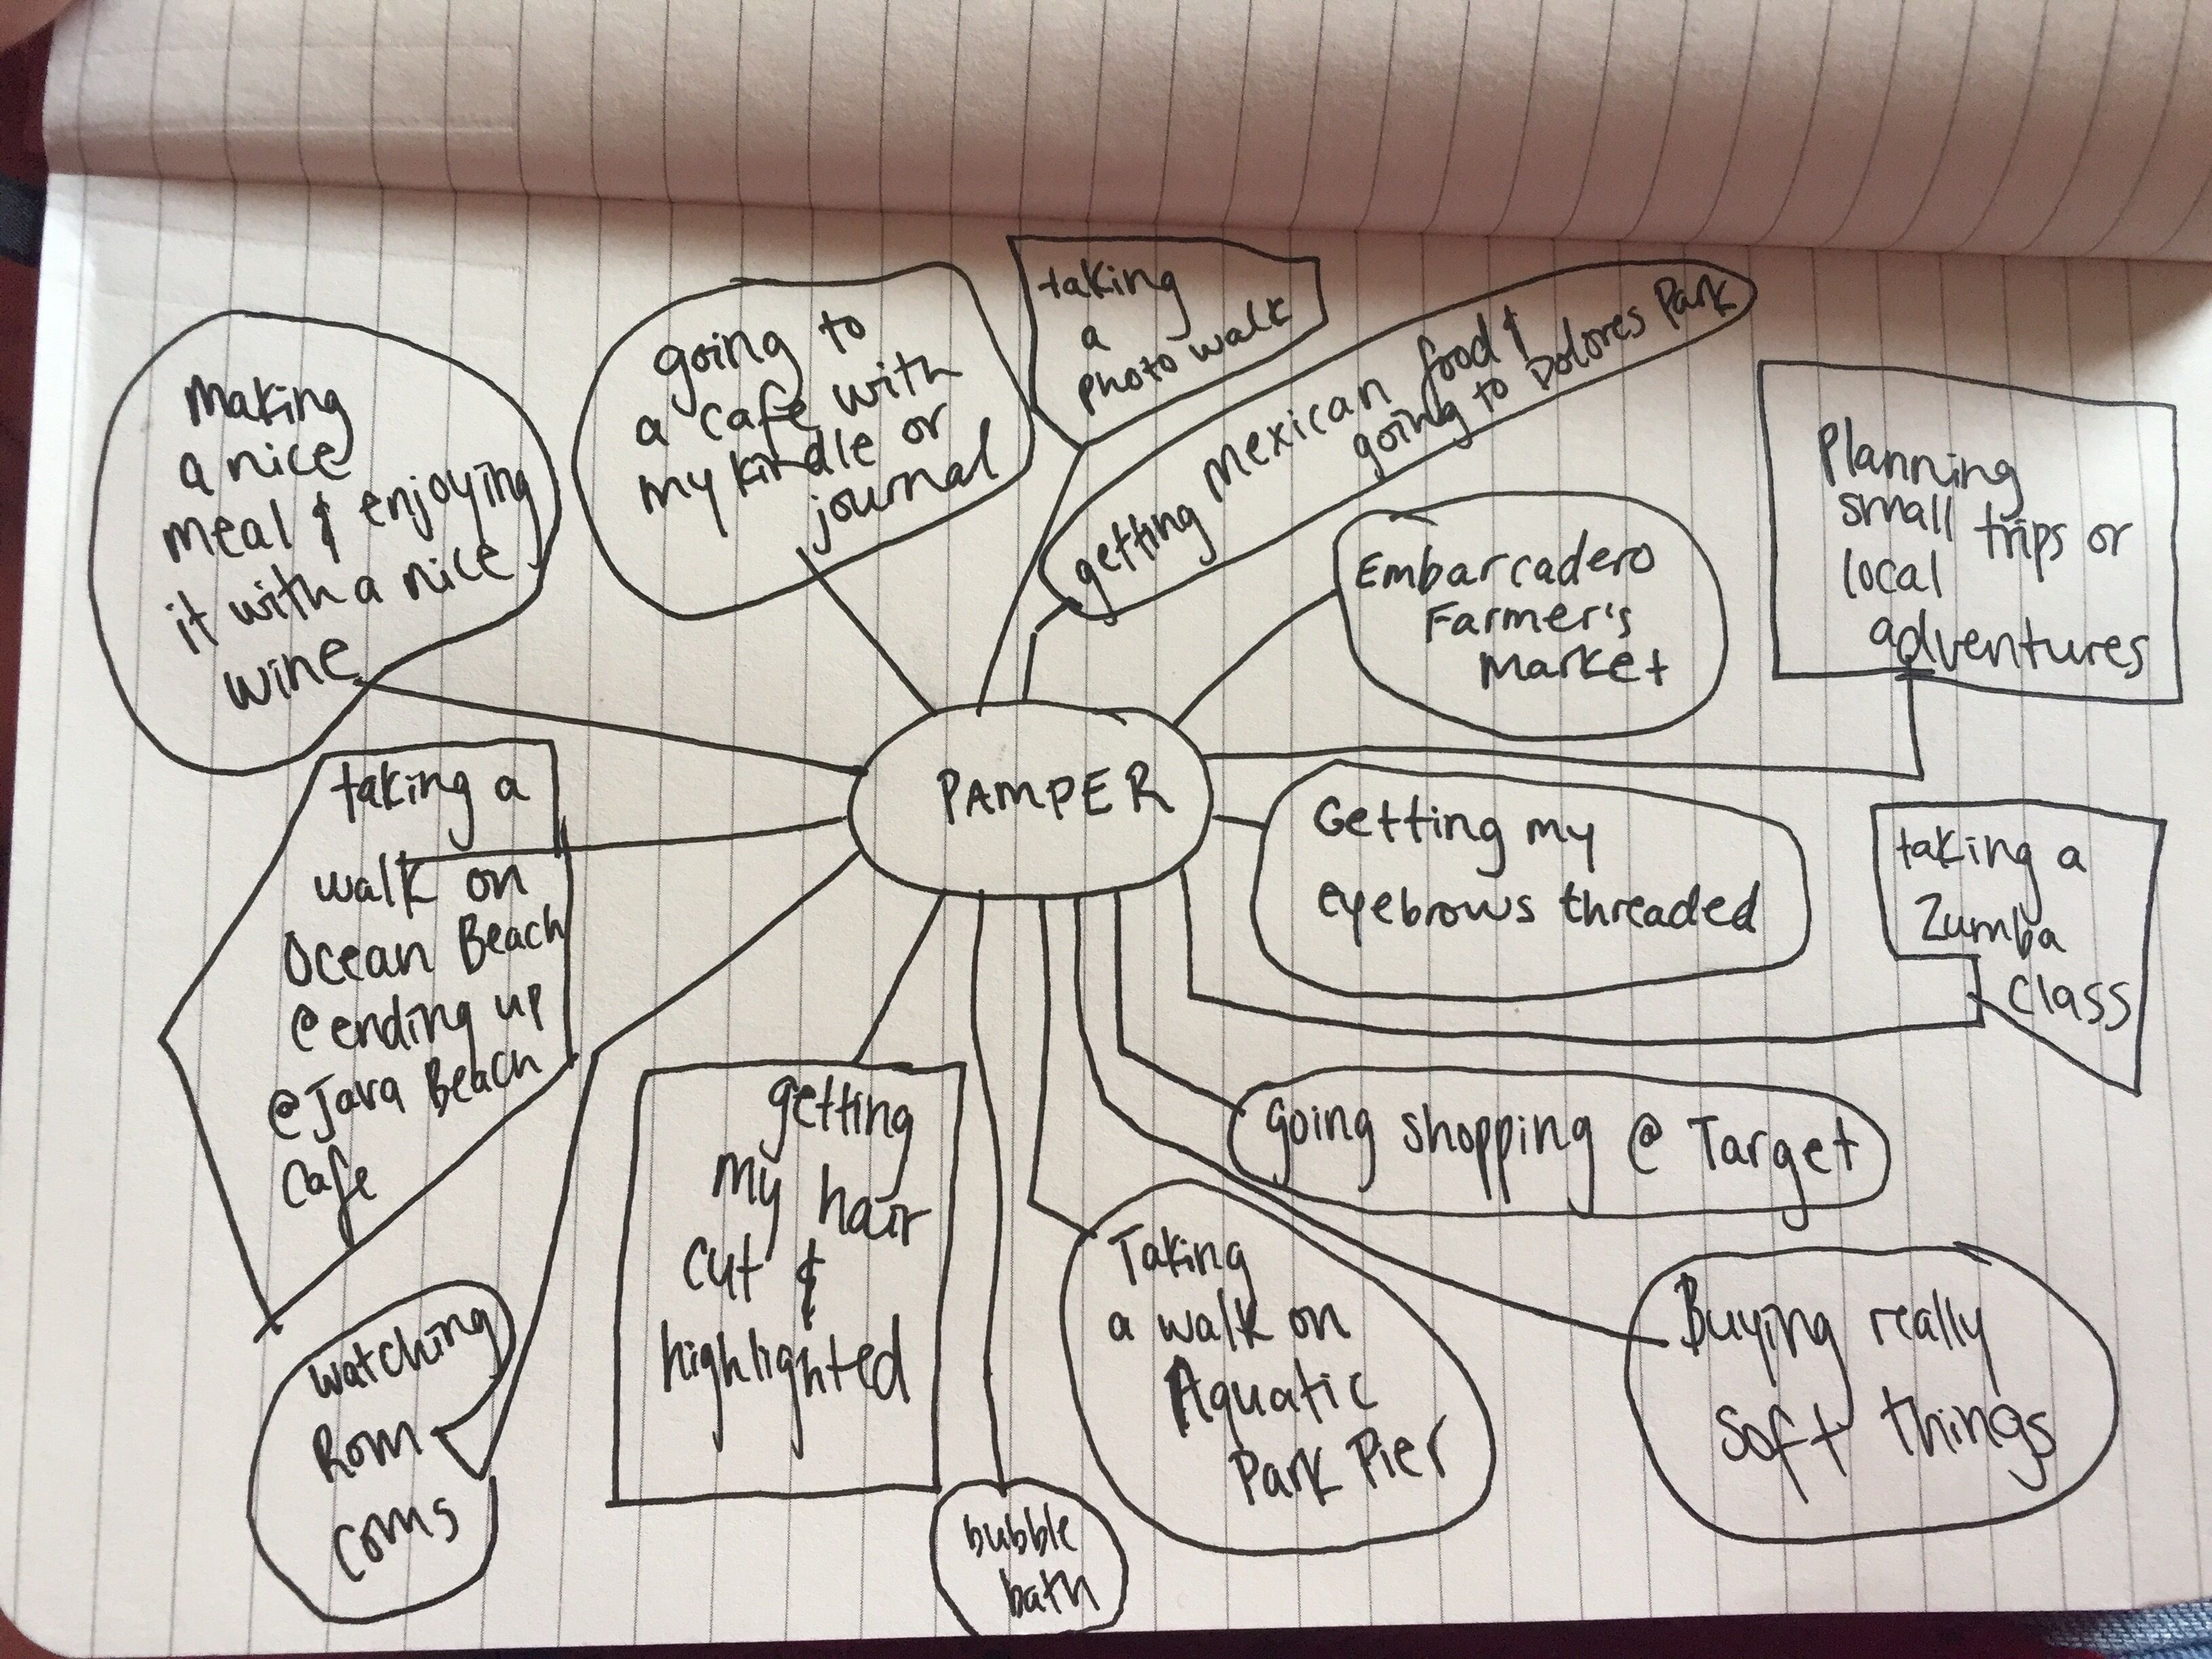 making
a nice
meal & enjoying
it with a nice
wine
going to
a cafe with
my kindle or
journal
taking
a
photo walk
getting mexican food &
going to Dolores Park
Embarcadero
Farmer's
Market
Planning
small trips or
local
adventures
PAMPER
taking a
walk on
Ocean Beach
@ending up
@Java Beach
Cafe
Getting my
eyebrows threaded
taking a
Zumba
Class
going shopping @ Target
getting
my hair
cut &
highlighted
Taking
a walk on
Aquatic
Park Pier
Buying really
soft things
watching
Rom
coms
bubble
bath